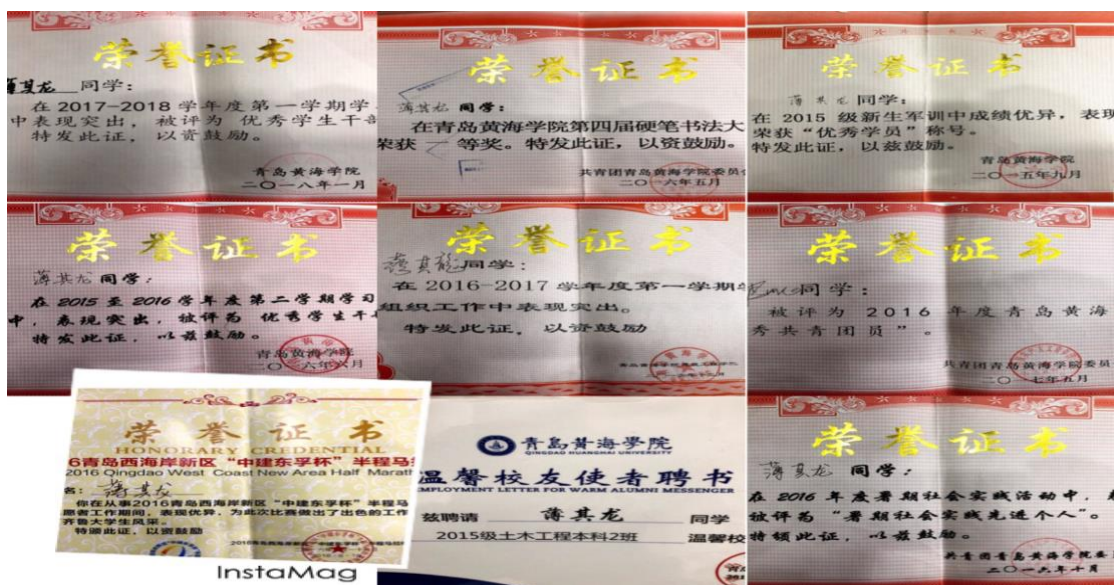 荣誉证书
薄其龙 同学:
在 2017-2018 学年度第一学期学
中表现突出，被评为 优秀学生干部
特发此证，以资鼓励。
青岛黄海学院
二〇一八年一月
荣誉证书
薄其龙 同学:
在青岛黄海学院第四届硬笔书法大
荣获 等奖。特发此证，以资鼓励。
共青团青岛黄海学院委员
二〇一六年五月
荣誉证书
薄其龙 同学:
在 2015 级新生军训中成绩优异，表现
荣获“优秀学员”称号。
特发此证，以兹鼓励。
青岛黄海学院
二〇一五年九月
荣誉证书
薄其龙 同学:
在 2015 至 2016 学年度第二学期学习
中，表现突出，被评为 优秀学生干
特发此证，以兹鼓励。
青岛黄海学院
二〇一六年六月
荣誉证书
薄其龙 同学:
在 2016-2017 学年度第一学期
组织工作中表现突出。
特发此证，以资鼓励
荣誉证书
同学:
被评为 2016 年度青岛黄海
秀共青团员”。
共青团青岛黄海学院委员
二〇一七年五月
荣誉证书
HONORARY CREDENTIAL
6青岛西海岸新区“中建东孚杯”半程马
2016 Qingdao West Coast New Area Half Marath
名: 薄其龙
你在从事2016青岛西海岸新区“中建东孚杯”半程马
愿者工作期间，表现优异，为此次比赛做出了出色的工作
齐鲁大学生风采。
特颁此证，以资鼓励
InstaMag
青岛黄海学院
QINGDAO HUANGHAI UNIVERSITY
温馨校友使者聘书
EMPLOYMENT LETTER FOR WARM ALUMNI MESSENGER
兹聘请 薄其龙 同学
2015级土木工程本科2班 温馨校
荣誉证书
薄其龙 同学:
在 2016 年度暑期社会实践活动中，
被评为“暑期社会实践先进个人”。
特颁此证，以兹鼓励。
共青团青岛黄海学院委员
二〇一六年十月